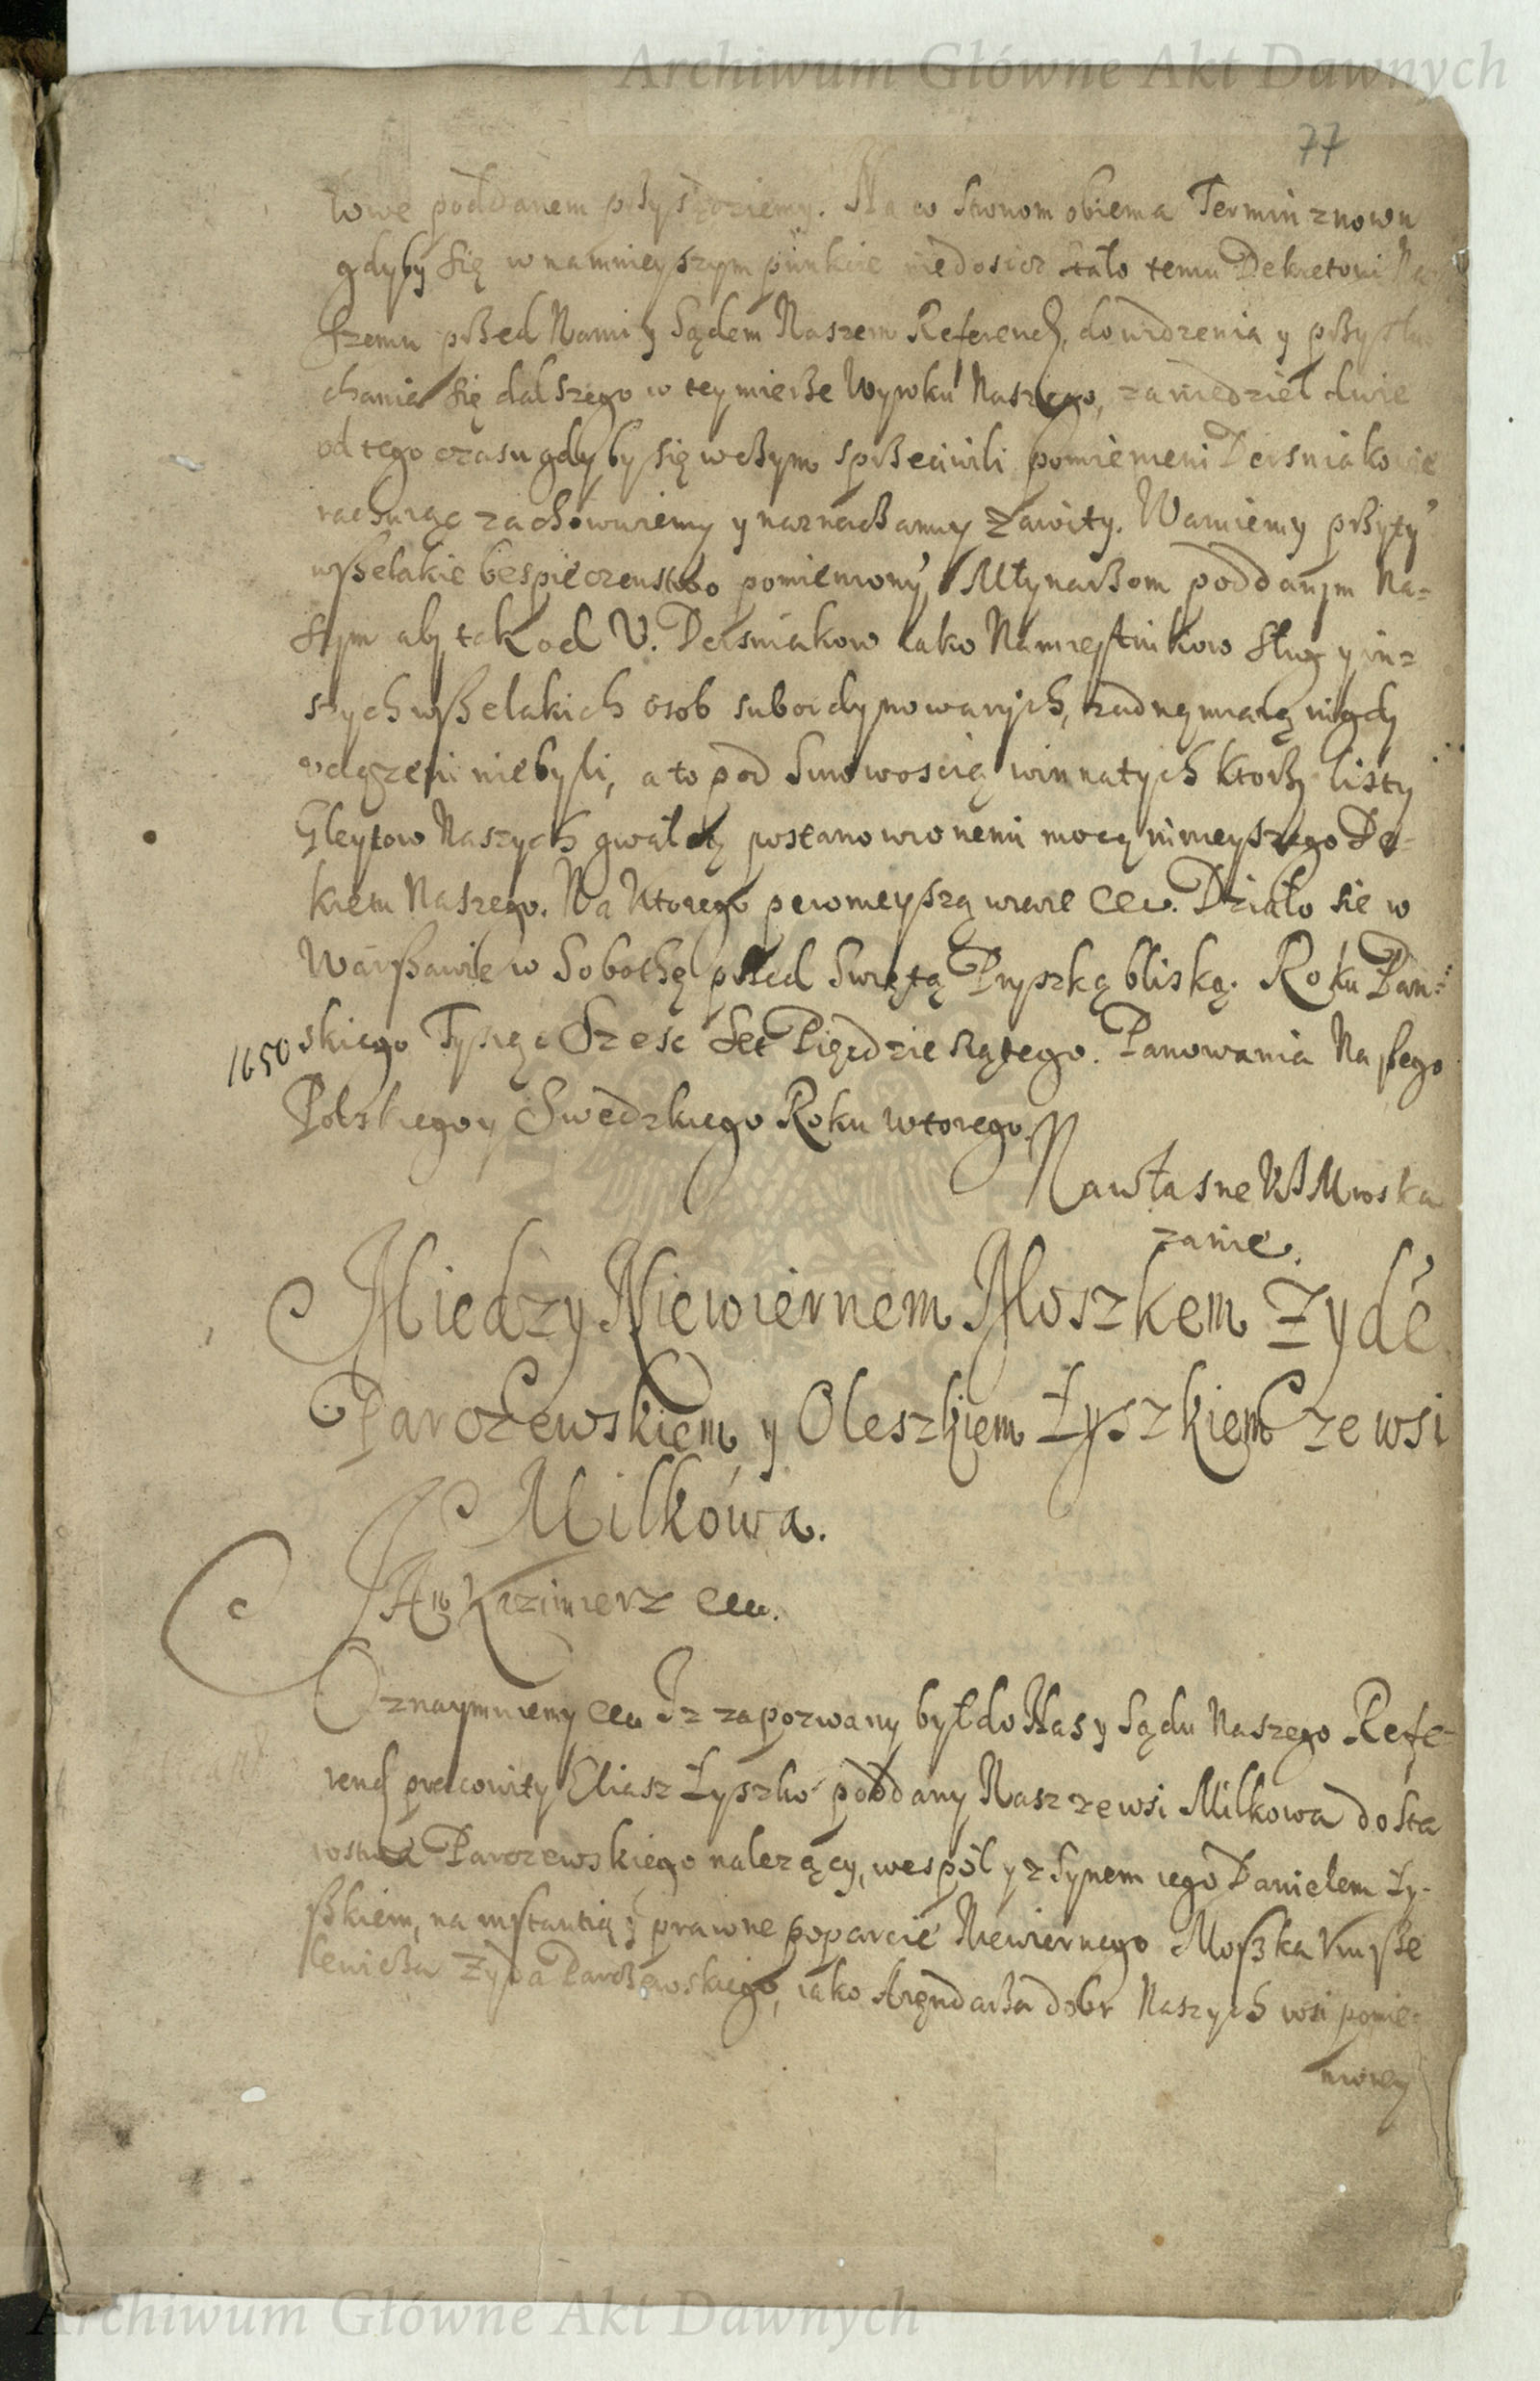 Archiwum Główne Akt Dawnych
77
towe poddanem przysądziemy. Na co Stronom obiema Termin znowu
gdyby się w namnieyszym punkcie niedosicz stało temu Dekretowi Na
szemu przed Nami y Sądem Naszem Referend, do widzenia y przysłu
chania się dalszego w tey mierze Wyroku Naszego, za niedziel dwie
od tego czasu gdyby się w czym sprzeciwili pomienieni Dersniakowie
rachuiąc zachowuiemy y naznaczamy zawity. Waruiemy przyty
wszelakie bespieczenstwo pomieniony Młynarzom poddanym Na=
szym aby tak od U. Dersniakow iako Namiestnikow Sług y in=
szych wszelakich osob subordynowanych, zadną miarą nigdy
niebyli, a to pod Surowoscią win na tych ktorzy listy
Gleytow Naszych gwałcą postanowionemi mocą ninieyszego De-
kretu Naszego. Na ktorego pewnieyszą wiare etc. Działo sie w
Warszawie w Sobothę przed Swiętą Pryszką bliską. Roku Pan=
1650 skiego Tysiąc Szesc Set Pięcdziesiątego. Panowania Naszego
Polskiego y Swedzkiego Roku wtorego.
Na własne KJMwska
zanie.
Miedzy Niewiernem Moszkem Zydē
Parczewskiem, y Oleszkiem Łyszkiem ze wsi
Milkowa.
JAN Kazimierz etc.
Oznaymuiemy etc. Iz zapozwany był do Nas y Sądu Naszego Refe-
rend pracowity Eliasz Łyszko poddany Nasz ze wsi Milkowa do sta
rostwa Parczewskiego nalezący, wespół y z synem iego Danielem Ły-
szkiem, na instantią y prawne poparcie Niewiernego Moszka
Zyda Parczewskiego, iako Arędarza dobr Naszych wsi pomie-
nioney
Archiwum Główne Akt Dawnych